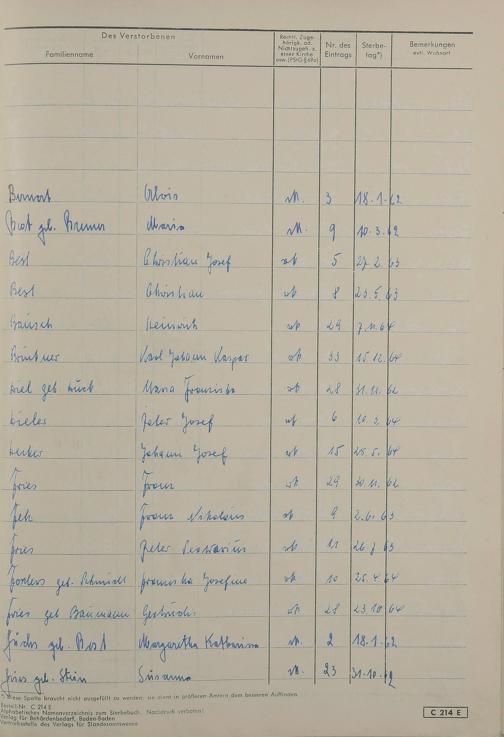 Des Verstorbenen
Familienname Vornamen Rechtl. Zuge- hörigk. od. Nichtzugeh. z. einer Kirche usw. (PStG § 69a) Nr. des Eintrags Sterbe- tag*) Bemerkungen evtl. Wohnort
Alois rk. 3 18.1.62
geb. Bremer Maria rk. 9 10.3.62
Best Christian Josef rk 5 27.2.63
Best Christian rk 8 23.5.63
Bausch Heinrich rk 29 7.11.64
Karl Johann Kaspar rk 33 15.12.64
geb Maria Franziska rk 28 62
Peter Josef rk 6 64
Johann Josef rk 15 64
Fries Franz rk 29 30.11.62
Franz Nikolaus rk 9 2.6.63
Fries Peter rk 11 26.7.63
geb. Schmidt Franziska Josefine rk 10 25.4.64
Fries geb Baumann Gertrud rk 28 23.10.64
Fuchs geb. Best Margaretha Katharina rk. 2 18.1.62
Fries geb. Stein Susanna rk. 23 31.10.62
*) Diese Spalte braucht nicht ausgefüllt zu werden; sie dient in größeren Ämtern dem besseren Auffinden.
Bestell-Nr. C 214 E
Alphabetisches Namenverzeichnis zum Sterbebuch. Nachdruck verboten!
Verlag für Behördenbedarf, Baden-Baden
Vertriebsstelle des Verlags für Standesamtswesen
C 214 E